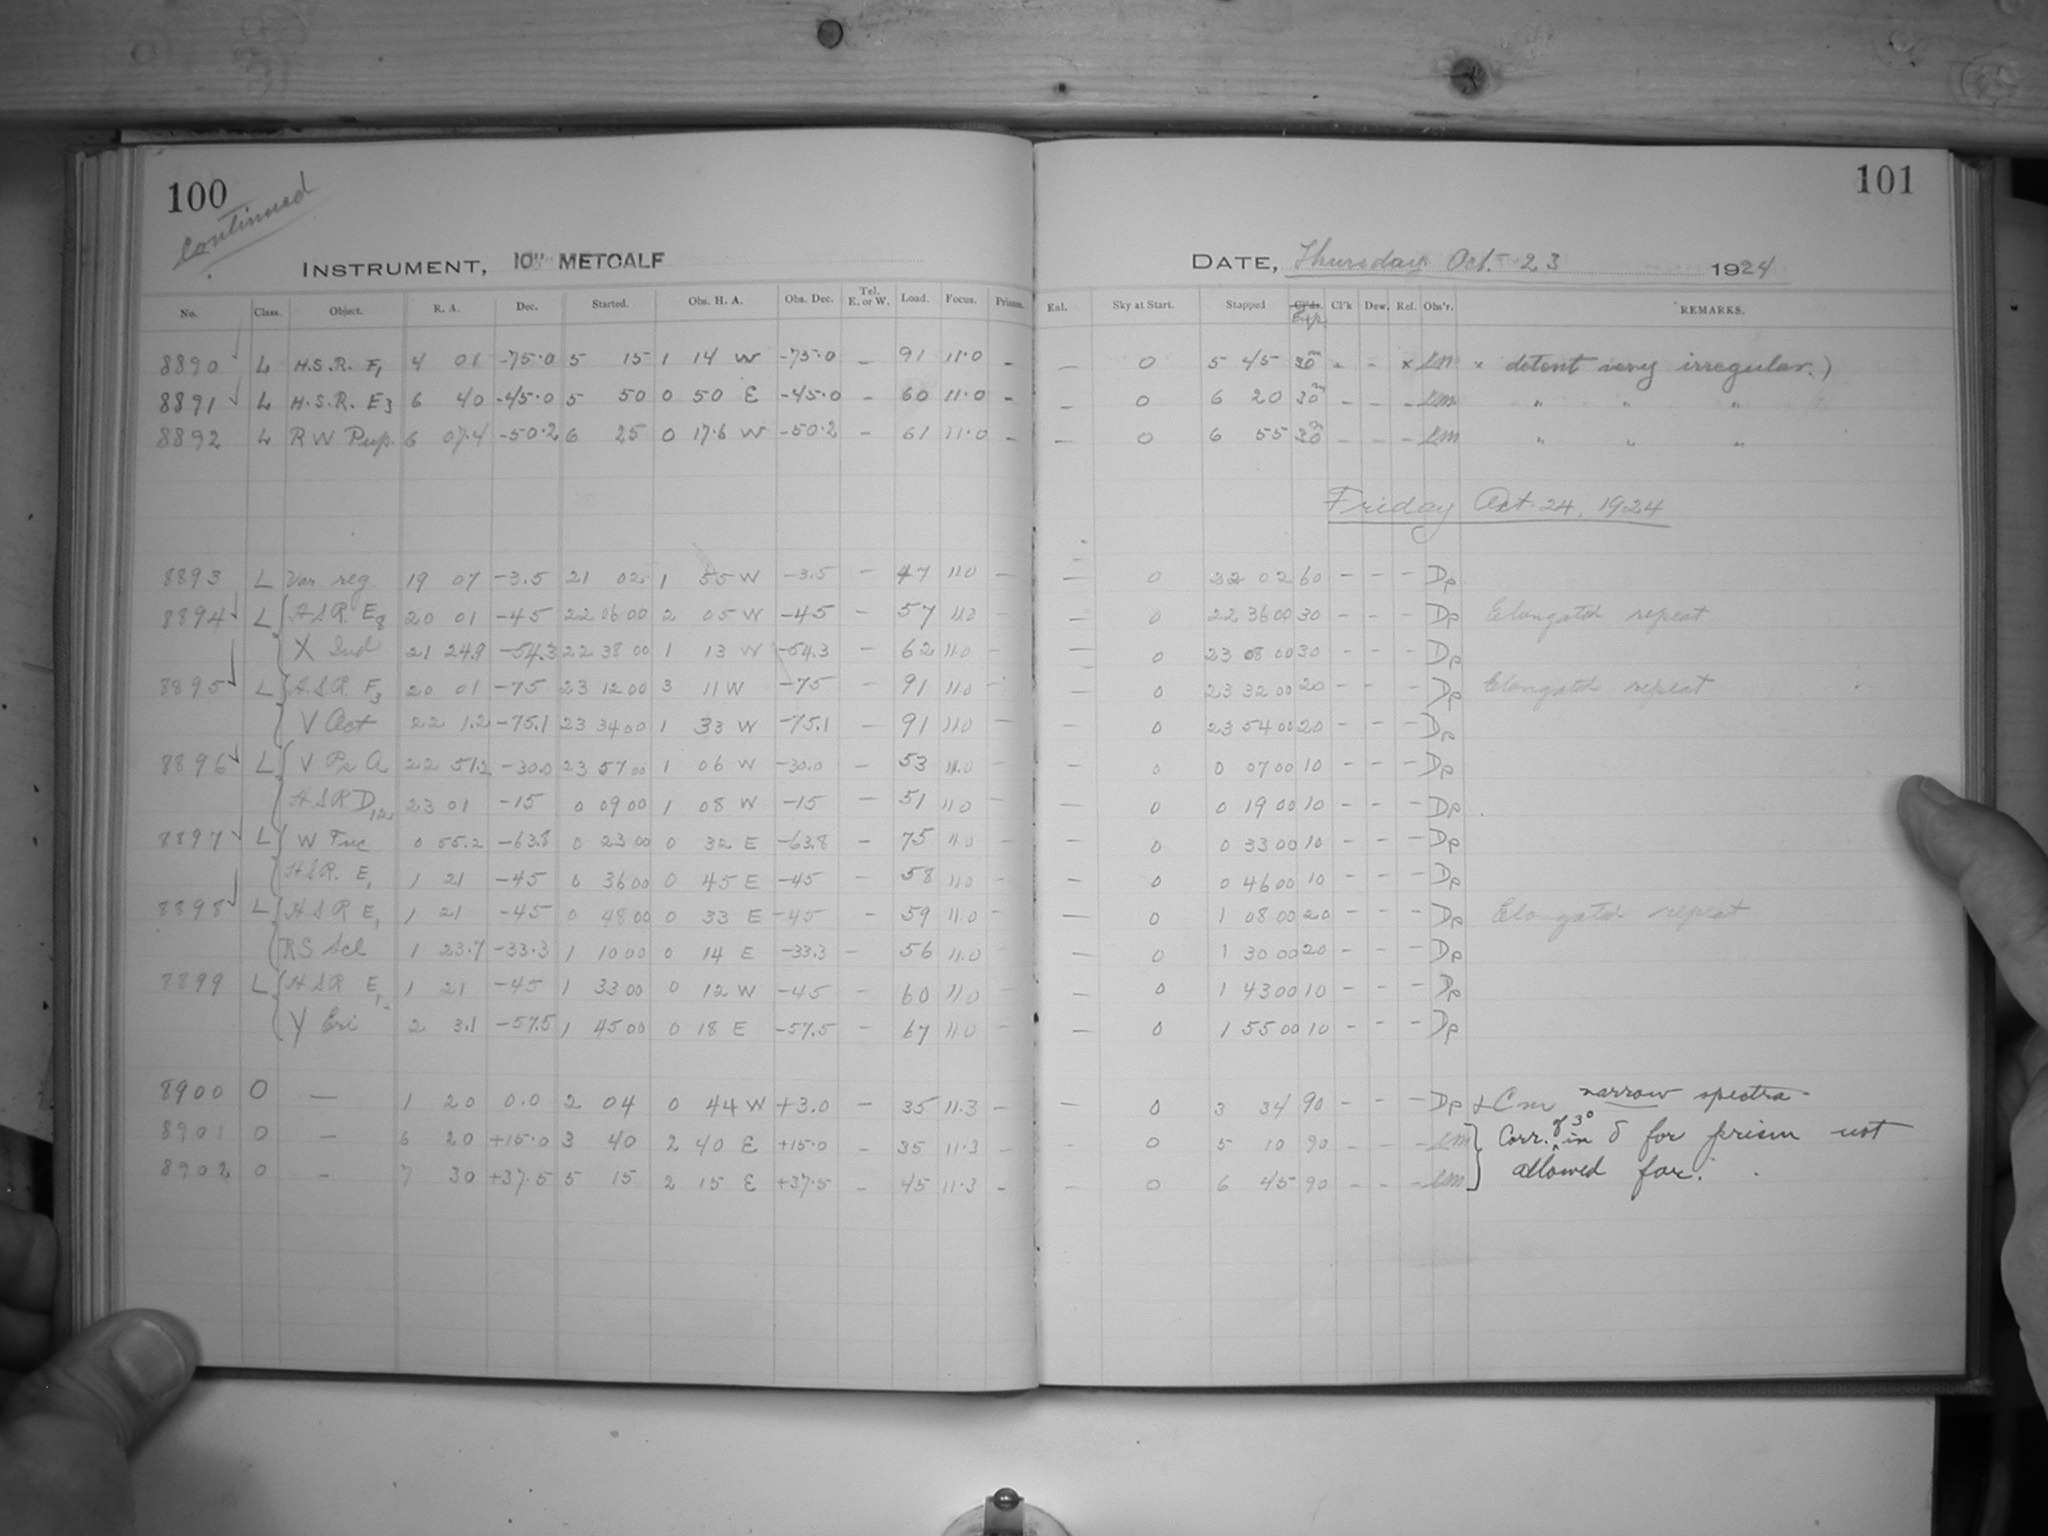 100
Continued
INSTRUMENT, 10" METCALF
No. Class. Object. R. A. Dec. Started. Obs. H. A. Obs. Dec. Tel. E. or W. Load. Focus. Prisms.
8890 L H.S.R. F1 4 01 -75.0 5 15 1 14 W -75.0 – 91 11.0 –
8891 L H.S.R. E3 6 40 -45.0 5 50 0 50 E -45.0 – 60 11.0 –
8892 L RW Pup. 6 07.4 -50.2 6 25 0 17.6 W -50.2 – 61 11.0 –
8893 L Var reg. 19 07 -3.5 21 02 1 55 W -3.5 – 47 11.0 –
8894 L H S R. E8 20 01 -45 22 06 00 2 05 W -45 – 57 11.0 –
X Ind 21 24.9 -54.3 22 38 00 1 13 W -54.3 – 62 11.0 –
8895 L H.S.R. F3 20 01 -75 23 12 00 3 11 W -75 – 91 11.0 –
V Oct 22 1.2 -75.1 23 34 00 1 33 W -75.1 – 91 11.0 –
8896 L V Ps A 22 51.2 -30.0 23 57 00 1 06 W -30.0 – 53 11.0 –
H S R D12 23 01 -15 0 09 00 1 08 W -15 – 51 11.0 –
8897 L W Tuc 0 55.2 -63.8 0 23 00 0 32 E -63.8 – 75 11.0 –
H S R. E1 1 21 -45 0 36 00 0 45 E -45 – 58 11.0 –
8898 L H S R E1 1 21 -45 0 48 00 0 33 E -45 – 59 11.0 –
RS Scl 1 23.7 -33.3 1 10 00 0 14 E -33.3 – 56 11.0 –
8899 L H S R E1 1 21 -45 1 33 00 0 12 W -45 – 60 11.0 –
Y Eri 2 3.1 -57.5 1 45 00 0 18 E -57.5 – 67 11.0 –
8900 O — 1 20 0.0 2 04 0 44 W +3.0 – 35 11.3 –
8901 O – 6 20 +15.0 3 40 2 40 E +15.0 – 35 11.3 –
8902 O – 7 30 +37.5 5 15 2 15 E +37.5 – 45 11.3 –
101
DATE, Thursday Oct. 23 1924
Eal. Sky at Start. Stopped Exp. Cl'k Dew. Ref. Obs'r. REMARKS.
– 0 5 45 30m – – × × detent very irregular.)
– 0 6 20 30m – – – " " "
– 0 6 55 30m – – – " " "
Friday Oct. 24, 1924
– 0 22 02 60 – – – Dp
– 0 22 36 00 30 – – – Dp Elongated repeat
– 0 23 08 00 30 – – – Dp
– 0 23 32 00 20 – – – Dp Elongated repeat
– 0 23 54 00 20 – – – Dp
– 0 0 07 00 10 – – – Dp
– 0 0 19 00 10 – – – Dp
– 0 0 33 00 10 – – – Dp
– 0 0 46 00 10 – – – Dp
– 0 1 08 00 20 – – – Dp Elongated repeat
– 0 1 30 00 20 – – – Dp
– 0 1 43 00 10 – – – Dp
– 0 1 55 00 10 – – – Dp
– 0 3 34 90 – – – Dp narrow spectra
– 0 5 10 90 – – – Corr. of 3° in δ for prism not
– 0 6 45 90 – – – allowed for.